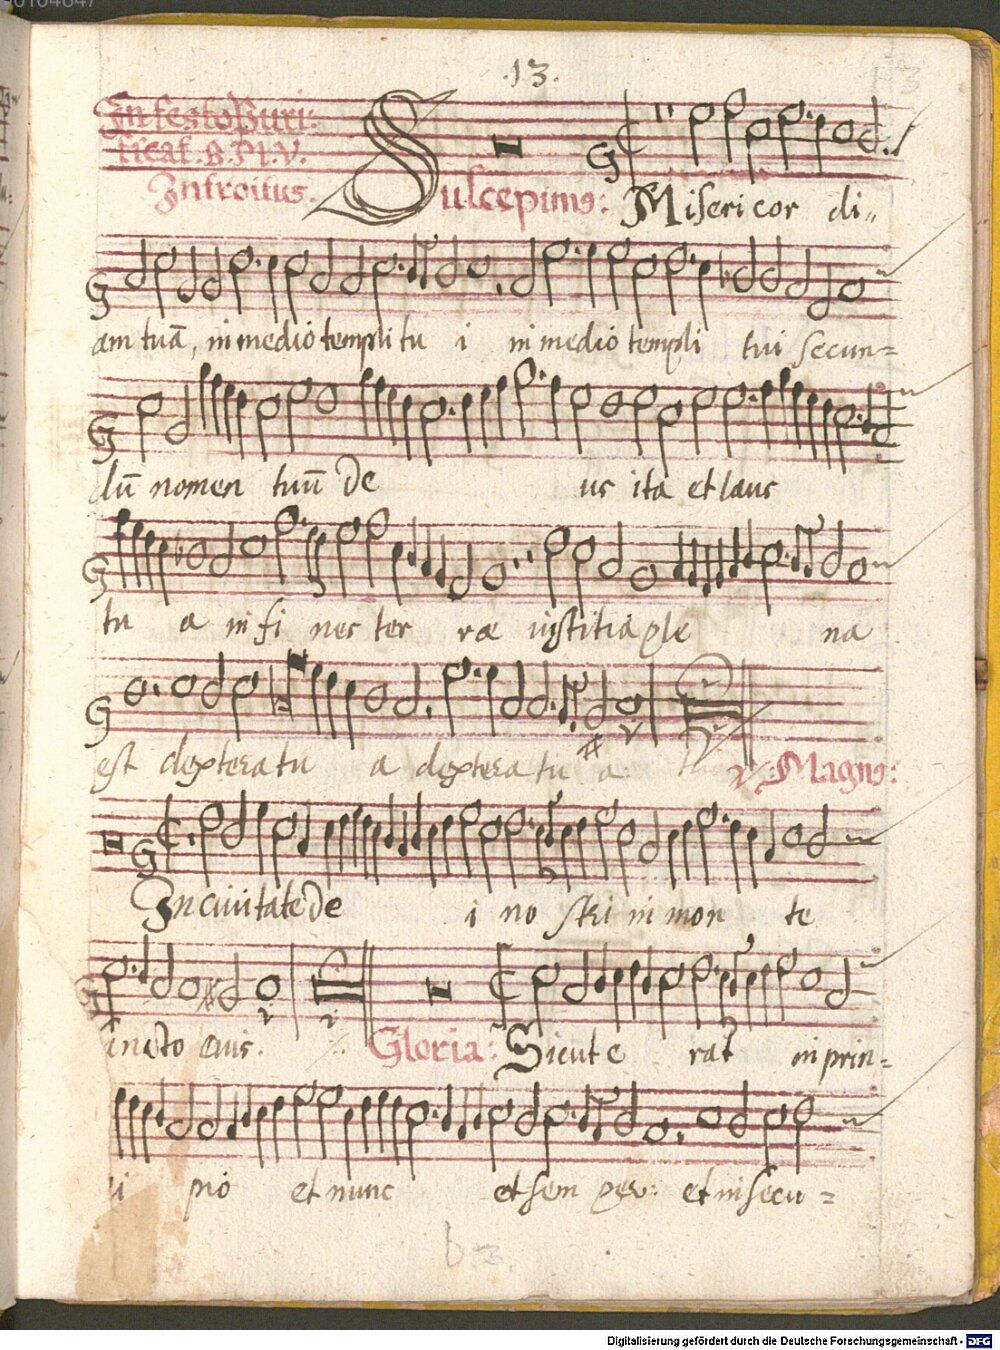 .13.
In festo Puri:
ficat. B. M. V.
Introitus.
Suscepimus: Misericor di„
am tuā, in medio templi tu i in medio templi tui secun=
dū nomen tuū De us ita et laus
tu a in fi nes ter ræ iustitia ple na
est dextera tu a dextera tu a.
V: Magnus:
In civitate De i no stri in mon te
sancto eius. Gloria: Sicut e rat in prin=
ci pio et nunc et sem per: et in secu =
b 3
Digitalisierung gefördert durch die Deutsche Forschungsgemeinschaft - DFG